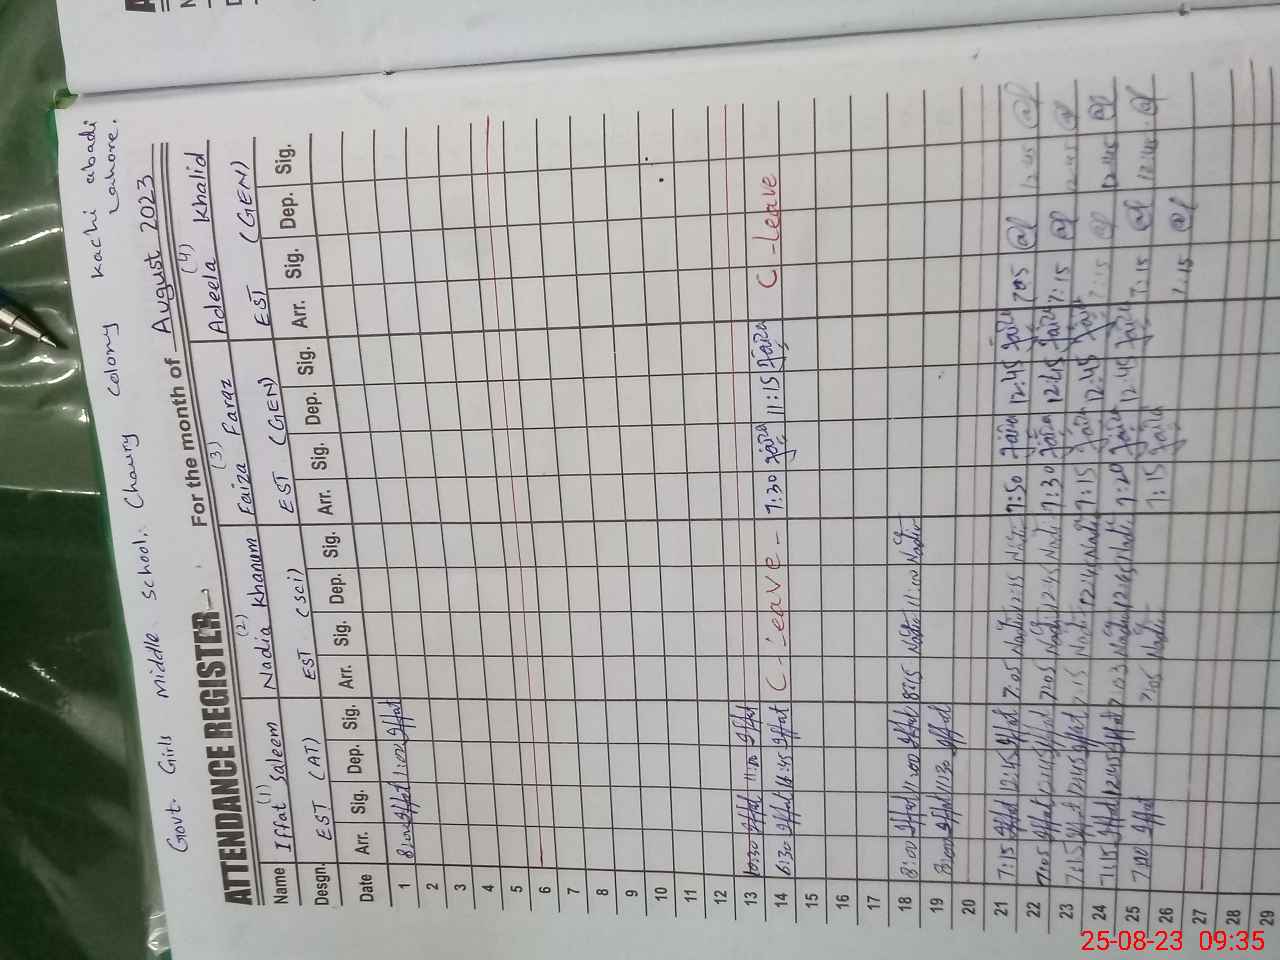 Govt. Girls Middle School, Chaury Colony Kachi abadi
Lahore.
ATTENDANCE REGISTER For the month of August 2023
Name (1) Iffat Saleem (2) Nadia Khanum (3) Faiza Faraz (4) Adeela Khalid
Desgn. EST (AT) EST (Sci) EST (GEN) EST (GEN)
Date Arr. Sig. Dep. Sig. Arr. Sig. Dep. Sig. Arr. Sig. Dep. Sig. Arr. Sig. Dep. Sig.
1 8:00 Iffat 1:00 Iffat
2
3
4
5
6
7
8
9
10
11
12
13 6:30 Iffat 11:30 Iffat
14 6:30 Iffat Iffat C-Leave- 7:30 Faiza 11:15 Faiza C-Leave
15
16
17
18 8:00 Iffat 11:00 Iffat 8:15 Nadia 11:00 Nadia
19 8:00 Iffat 11:30 Iffat
20
21 7:15 Iffat 12:45 Iffat 7:05 Nadia 12:15 Nadia 7:50 Faiza 12:45 Faiza 7:05 12:45
22 7:05 Iffat 12:45 Iffat 7:05 Nadia 12:45 Nadia 7:30 Faiza 12:45 Faiza 7:15 12:45
23 7:15 Iffat 12:45 Iffat 7:15 Nadia 12:45 Nadia 7:15 Faiza 12:45 Faiza 7:15 12:45
24 7:15 Iffat 12:45 Iffat 7:03 Nadia 12:45 Nadia 7:20 Faiza 12:45 Faiza 7:15 12:45
25 7:00 Iffat 7:05 Nadia 7:15 Faiza 7:15
26
27
28
29
25-08-23 09:35